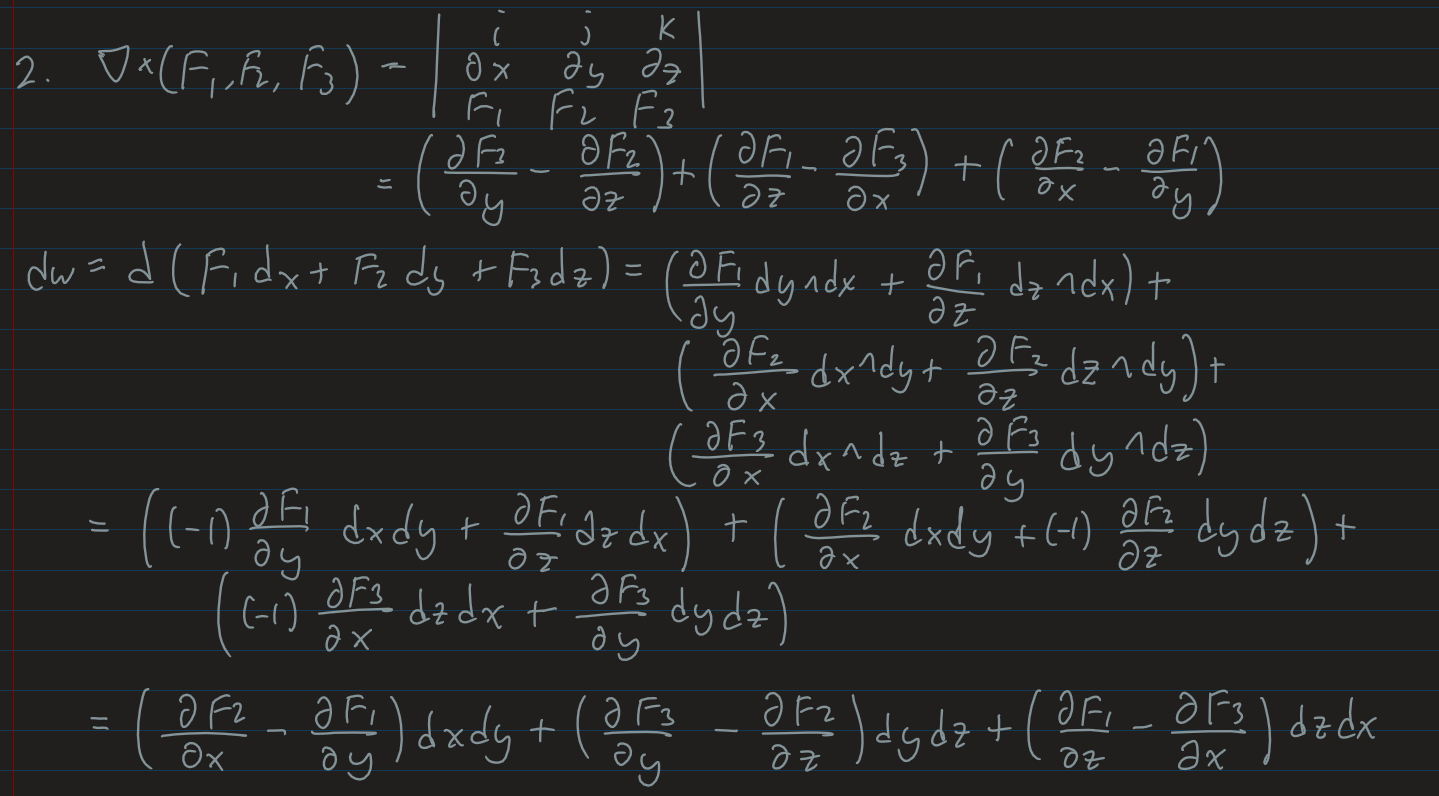 i j k
2. ∇×(F₁, F₂, F₃) = | ∂x ∂y ∂z |
F₁ F₂ F₃
= (∂F₃/∂y - ∂F₂/∂z) + (∂F₁/∂z - ∂F₃/∂x) + (∂F₂/∂x - ∂F₁/∂y)
dw = d(F₁dx + F₂dy + F₃dz) = (∂F₁/∂y dy∧dx + ∂F₁/∂z dz∧dx) +
(∂F₂/∂x dx∧dy + ∂F₂/∂z dz∧dy) +
(∂F₃/∂x dx∧dz + ∂F₃/∂y dy∧dz)
= ((-1) ∂F₁/∂y dxdy + ∂F₁/∂z dzdx) + (∂F₂/∂x dxdy + (-1) ∂F₂/∂z dydz) +
((-1) ∂F₃/∂x dzdx + ∂F₃/∂y dydz)
= (∂F₂/∂x - ∂F₁/∂y) dxdy + (∂F₃/∂y - ∂F₂/∂z) dydz + (∂F₁/∂z - ∂F₃/∂x) dzdx